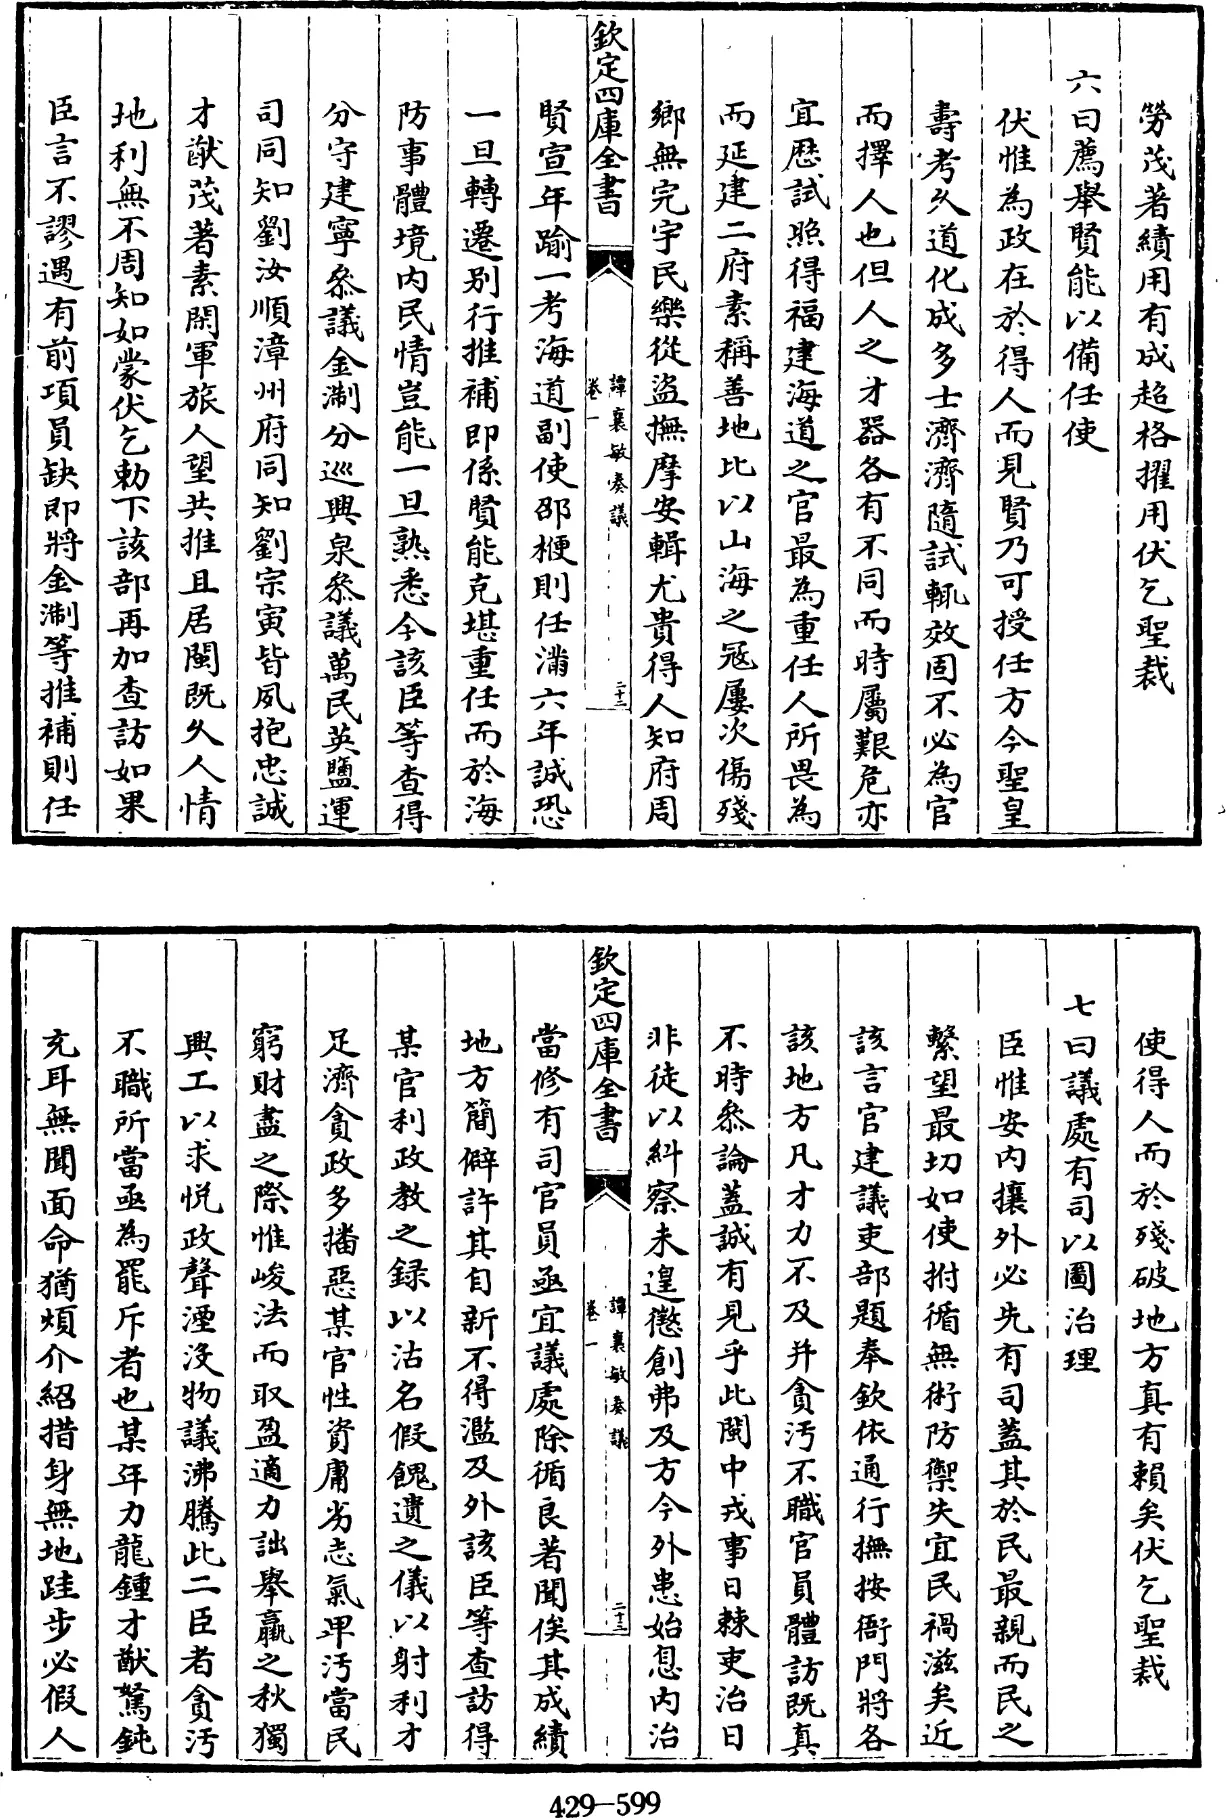 勞茂著績用有成超格擢用伏乞聖裁
六曰薦舉賢能以備任使
伏惟為政在於得人而見賢乃可授任方今聖皇
壽考久道化成多士濟濟隨試輒效固不必為官
而擇人也但人之才器各有不同而時屬艱危亦
宜歷試照得福建海道之官最為重任人所畏為
而延建二府素稱善地比以山海之冦屢次傷殘
鄉無完宇民樂從盜撫摩安輯尤貴得人知府周
賢宣年踰一考海道副使邵梗則任滿六年誠恐
一旦轉遷别行推補即係賢能克堪重任而於海
防事體境内民情豈能一旦熟悉今該臣等查得
分守建寧叅議金淛分巡興泉叅議萬民英鹽運
司同知劉汝順漳州府同知劉宗寅皆夙抱忠誠
才猷茂著素閑軍旅人望共推且居閩既久人情
地利無不周知如蒙伏乞勅下該部再加查訪如果
臣言不謬遇有前項員缺即將金淛等推補則任
欽定四庫全書
譚襄敏奏議
卷一
二十二
使得人而於殘破地方真有賴矣伏乞聖裁
七曰議處有司以圖治理
臣惟安内攘外必先有司蓋其於民最親而民之
繫望最切如使拊循無術防禦失宜民禍滋矣近
該言官建議吏部題奉欽依通行撫按衙門將各
該地方凡才力不及并貪污不職官員體訪既真
不時叅論蓋誠有見乎此閩中戎事日棘吏治日
非徒以糾察未遑懲創弗及方今外患始息内治
當修有司官員亟宜議處除循良著聞俟其成績
地方簡僻許其自新不得濫及外該臣等查訪得
某官利政教之録以沽名假餽遺之儀以射利才
足濟貪政多播惡某官性資庸劣志氣卑污當民
窮財盡之際惟峻法而取盈適力詘舉贏之秋獨
興工以求悦政聲湮没物議沸騰此二臣者貪污
不職所當亟為罷斥者也某年力龍鍾才猷駑鈍
充耳無聞面命猶煩介紹措身無地跬步必假人
欽定四庫全書
譚襄敏奏議
卷一
二十三
429-599